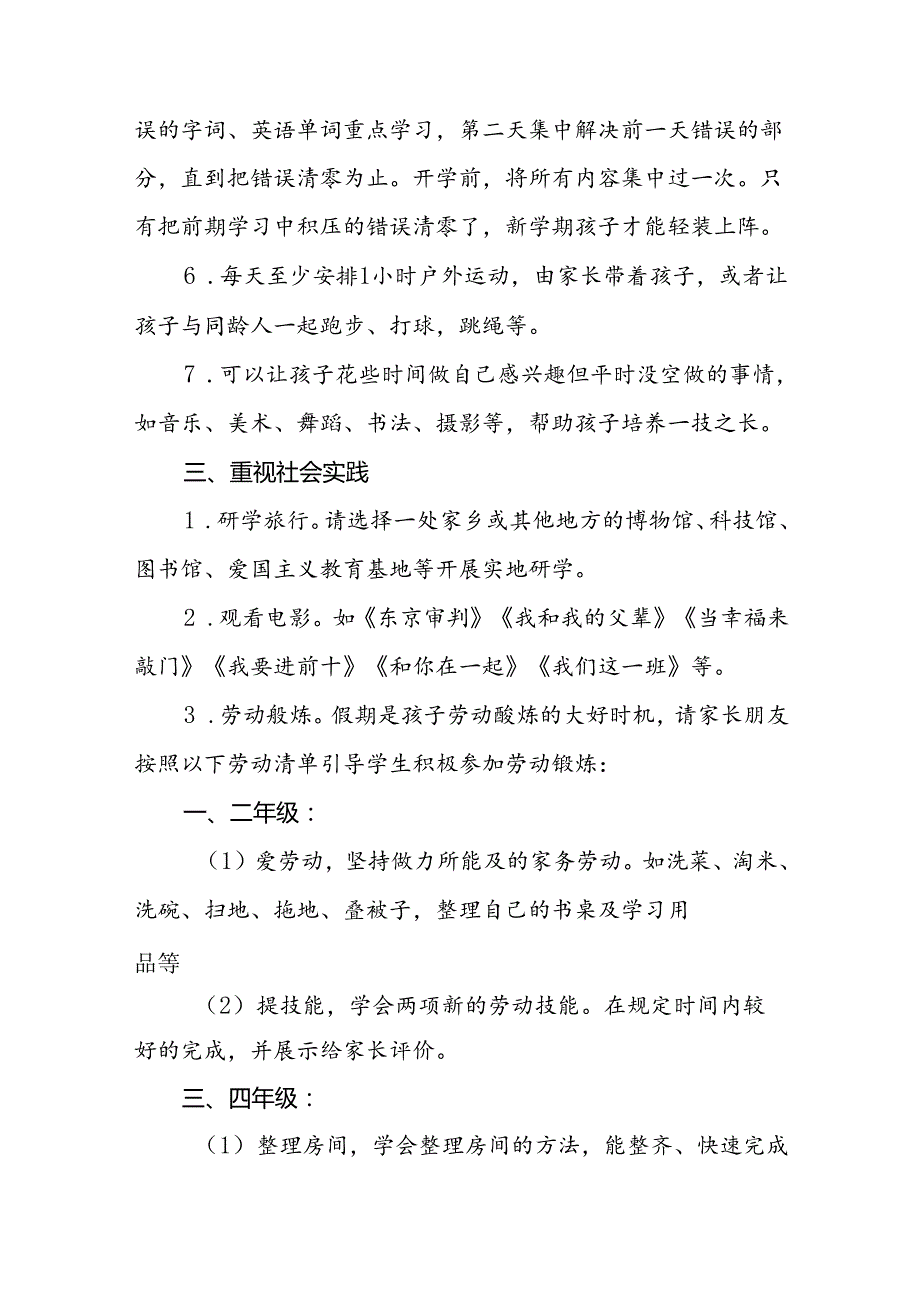 误的字词、英语单词重点学习，第二天集中解决前一天错误的部
分，直到把错误清零为止。开学前，将所有内容集中过一次。只
有把前期学习中积压的错误清零了，新学期孩子才能轻装上阵。
6．每天至少安排1小时户外运动，由家长带着孩子，或者让
孩子与同龄人一起跑步、打球，跳绳等。
7．可以让孩子花些时间做自己感兴趣但平时没空做的事情，
如音乐、美术、舞蹈、书法、摄影等，帮助孩子培养一技之长。
三、重视社会实践
1．研学旅行。请选择一处家乡或其他地方的博物馆、科技馆、
图书馆、爱国主义教育基地等开展实地研学。
2．观看电影。如《东京审判》《我和我的父辈》《当幸福来
敲门》《我要进前十》《和你在一起》《我们这一班》等。
3．劳动般炼。假期是孩子劳动酸炼的大好时机，请家长朋友
按照以下劳动清单引导学生积极参加劳动锻炼：
一、二年级：
（1）爱劳动，坚持做力所能及的家务劳动。如洗菜、淘米、
洗碗、扫地、拖地、叠被子，整理自己的书桌及学习用
品等
（2）提技能，学会两项新的劳动技能。在规定时间内较
好的完成，并展示给家长评价。
三、四年级：
（1）整理房间，学会整理房间的方法，能整齐、快速完成